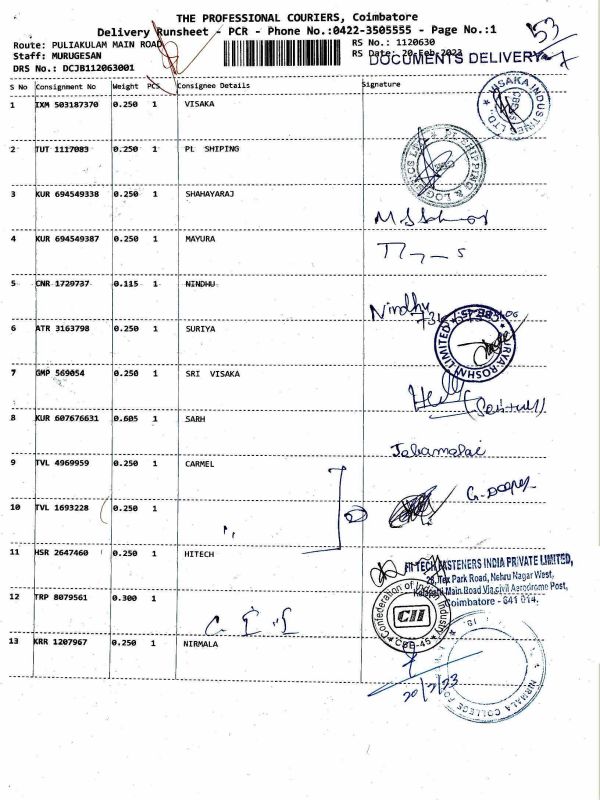 THE PROFESSIONAL COURIERS, Coimbatore
Delivery Runsheet - PCR - Phone No.:0422-3505555 - Page No.:1
53
Route: PULIAKULAM MAIN ROAD
RS No.: 1120630
Staff: MURUGESAN
RS Date: 20-Feb-2023
DOCUMENTS DELIVERY
DRS No.: DCJB112063001
S No Consignment No Weight PCS Consignee Details Signature
1 IXM 503187370 0.250 1 VISAKA
VISAKA INDUSTRIES LTD.
2 TUT 1117083 0.250 1 PL SHIPING
PL SHIPPING & LOGISTICS
3 KUR 694549338 0.250 1 SHAHAYARAJ
4 KUR 694549387 0.250 1 MAYURA
5 CNR 1729737 0.115 1 NINDHU
Nindhu
6 ATR 3163798 0.250 1 SURIYA
SURYA ROSHNI LIMITED
7 GMP 569054 0.250 1 SRI VISAKA
8 KUR 607676631 0.605 1 SARH
Jebamalai
9 TVL 4969959 0.250 1 CARMEL
10 TVL 1693228 0.250 1
11 HSR 2647460 0.250 1 HITECH
HI-TECH FASTENERS INDIA PRIVATE LIMITED,
28, Tex Park Road, Nehru Nagar West,
Kalapatti Main Road Via, civil Aerodrome Post,
Coimbatore - 641 014.
12 TRP 8079561 0.300 1
C I I
Confederation of Indian Industry
CII
CBE-45
13 KRR 1207967 0.250 1 NIRMALA
20/2/23
NIRMALA COLLEGE FO